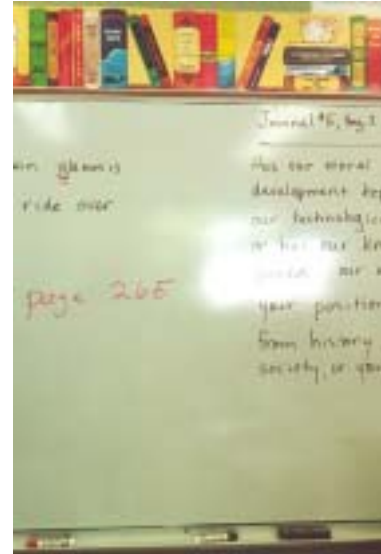 ride over
page 265
Journal #5, 
Has our moral
development kept
our technological
or has our
our
your position
from history
society, or your